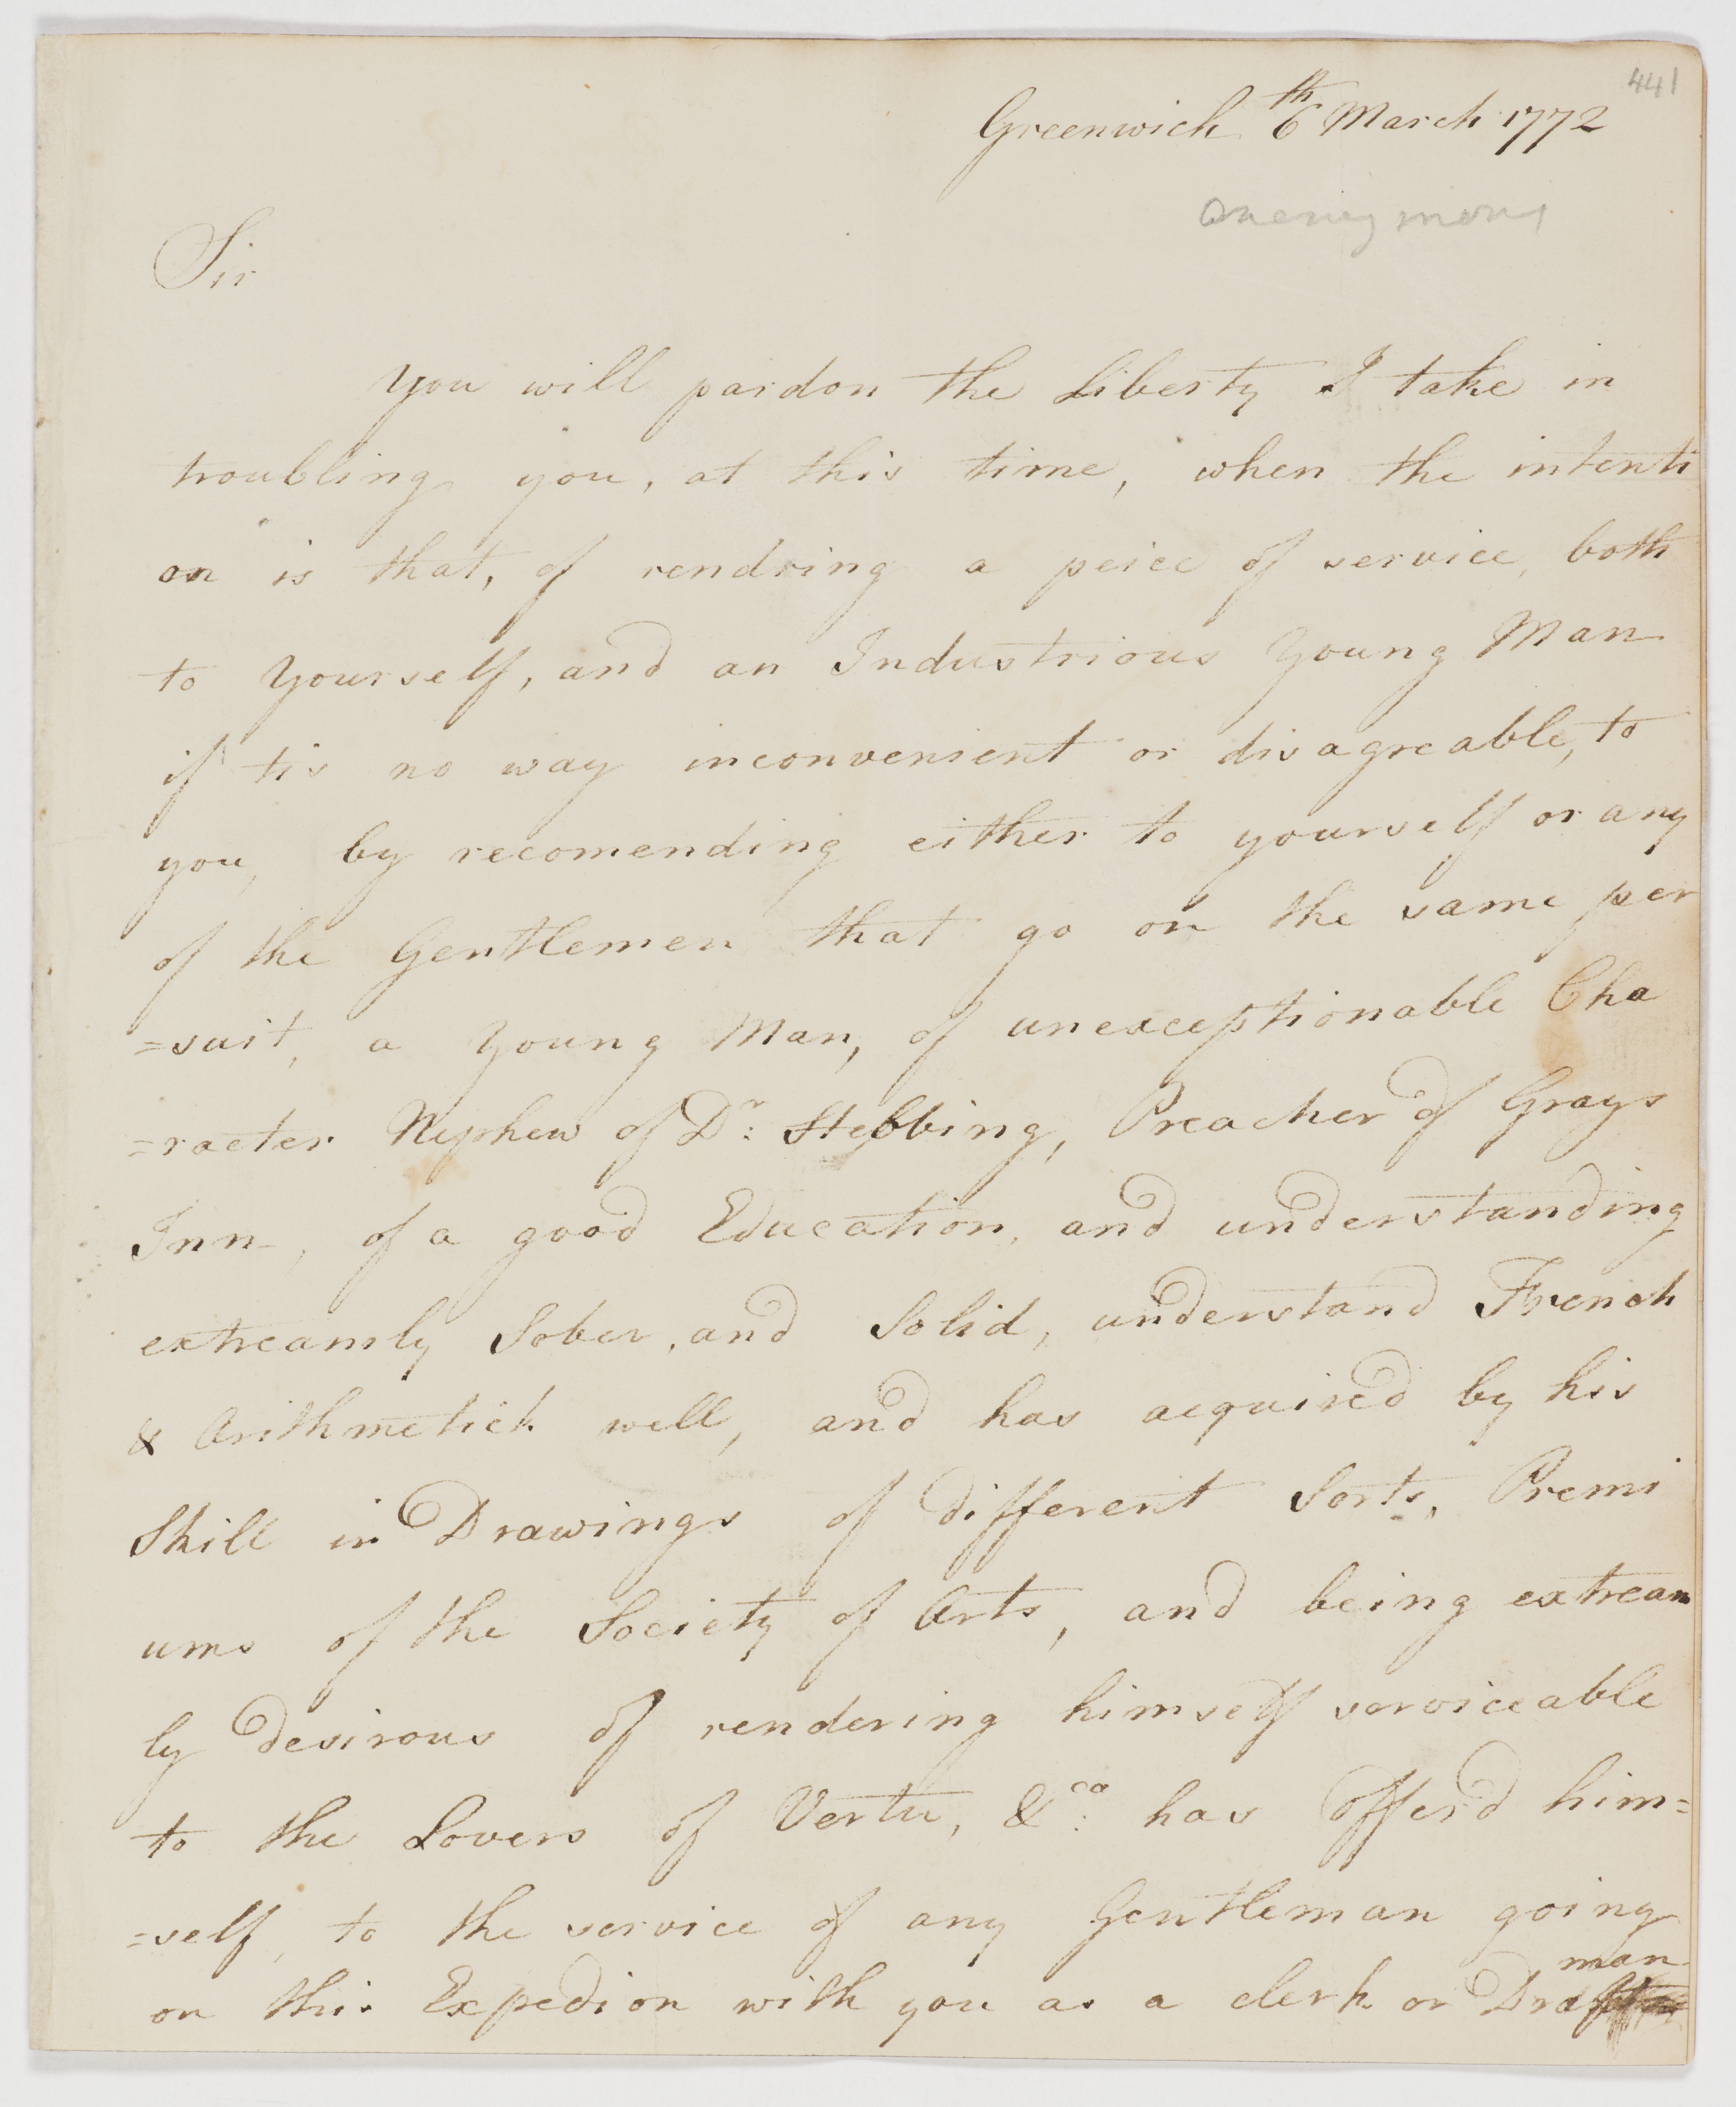 441
Greenwich 6th March 1772
anonymous
Sir
You will pardon the Liberty I take in
troubling you, at this time, when the intenti
on is that, of rendring a peice of service, both
to Yourself, and an Industrious Young Man
if tis no way inconvenient or disagreable, to
you, by recomending either to yourself or any
of the Gentlemen that go on the same per
=suit, a Young Man, of unexceptionable Cha
=racter Nephew of Dr: Stebbing, Preacher of Grays
Inn, of a good Education, and understanding
extreamly Sober, and Solid, understand French
& Arithmetick well, and has acquired by his
Skill in Drawings of different Sorts, Premi
ums of the Society of Arts, and being extream
ly desirous of rendering himself serviceable
to the Lovers of Vertu, &ca: has offer'd him=
=self, to the service of any Gentleman going
man
on this Expedion with you as a clerk or Draft